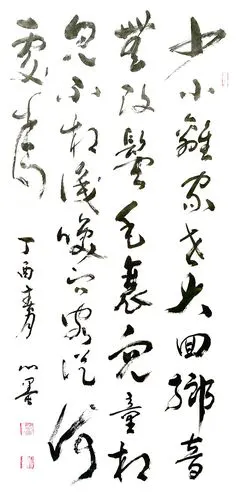 少小離家老大回鄉音
無改鬢毛衰兒童相
見不相識咲问客從何
處來
丁酉春心墨